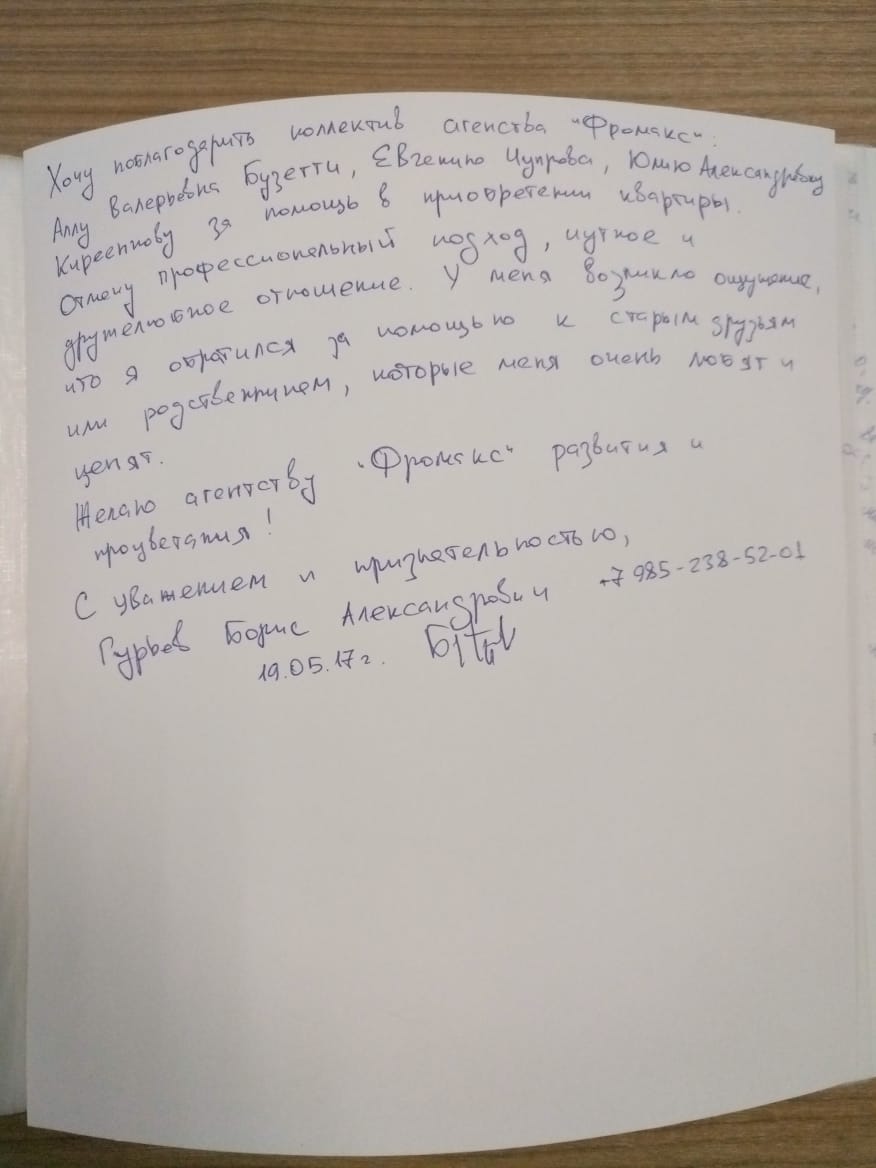 Хочу поблагодарить коллектив агенства "Фромакс":
Аллу Валерьевна Бузетти, Евгению Чупрова, Юлию Александровну
Кирееннову за помощь в приобретении квартиры.
Отмечу профессиональный подход, чуткое и
дружелюбное отношение. У меня возникло ощущение,
что я обратился за помощью к старым друзьям
или родственникам, которые меня очень любят и
ценят.
Желаю агентству "Фромакс" развития и
процветания!
С уважением и признательностью,
Гурьев Борис Александрович +7 985-238-52-01
19.05.17г.